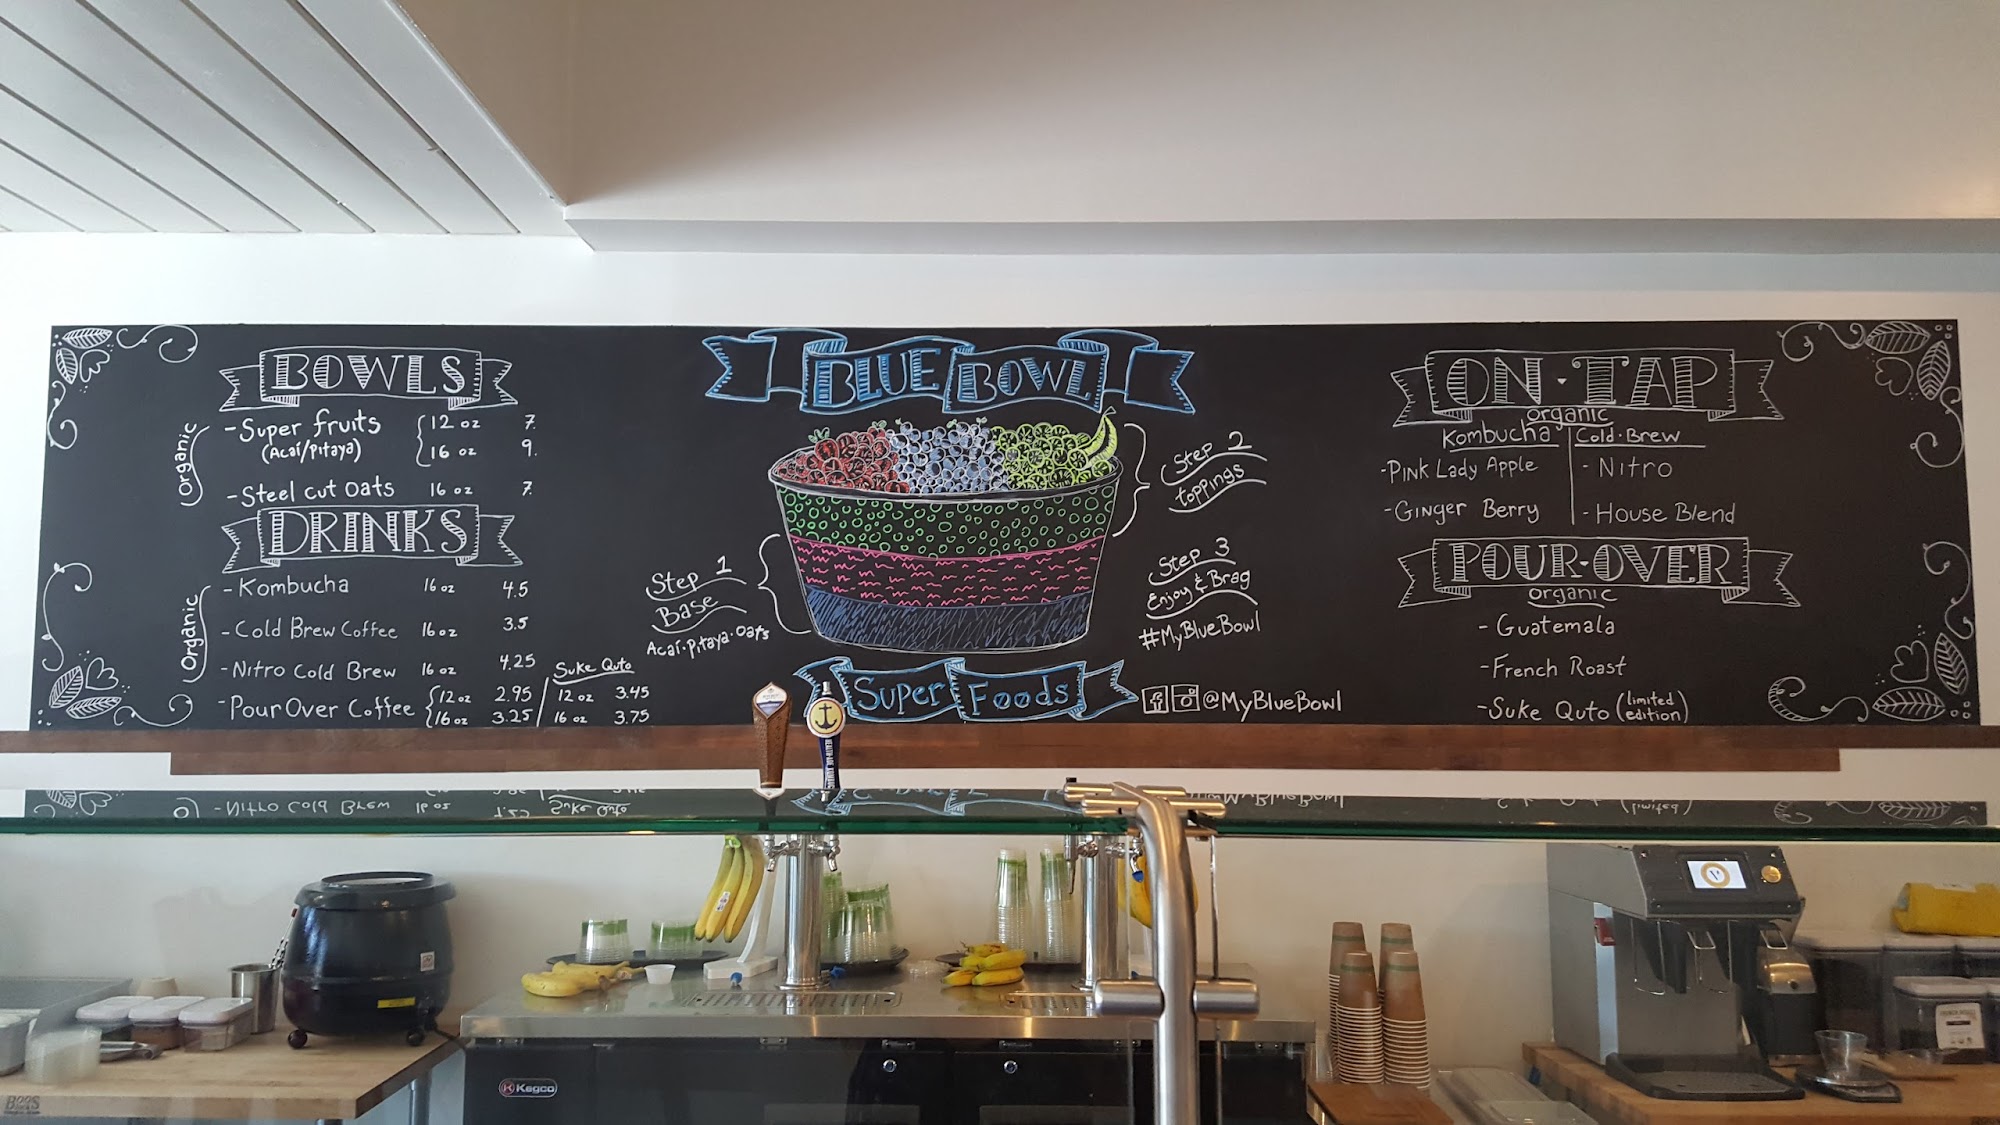 BOWLS
Organic
- Super fruits 12 oz 7.
(Acaí/Pitaya) 16 oz 9.
- Steel cut oats 16 oz 7.
DRINKS
Organic
- Kombucha 16 oz 4.5
- Cold Brew Coffee 16 oz 3.5
- Nitro Cold Brew 16 oz 4.25
Suke Quto
- Pour Over Coffee 12 oz 2.95 / 12 oz 3.45
16 oz 3.25 / 16 oz 3.75
BLUE BOWL
Step 1
Base
Acaí·Pitaya·Oats
Step 2
toppings
Step 3
Enjoy & Brag
#MyBlueBowl
Super Foods
f @MyBlueBowl
ON·TAP
organic
Kombucha Cold·Brew
- Pink Lady Apple - Nitro
- Ginger Berry - House Blend
POUR·OVER
organic
- Guatemala
- French Roast
- Suke Quto (limited edition)
Kegco